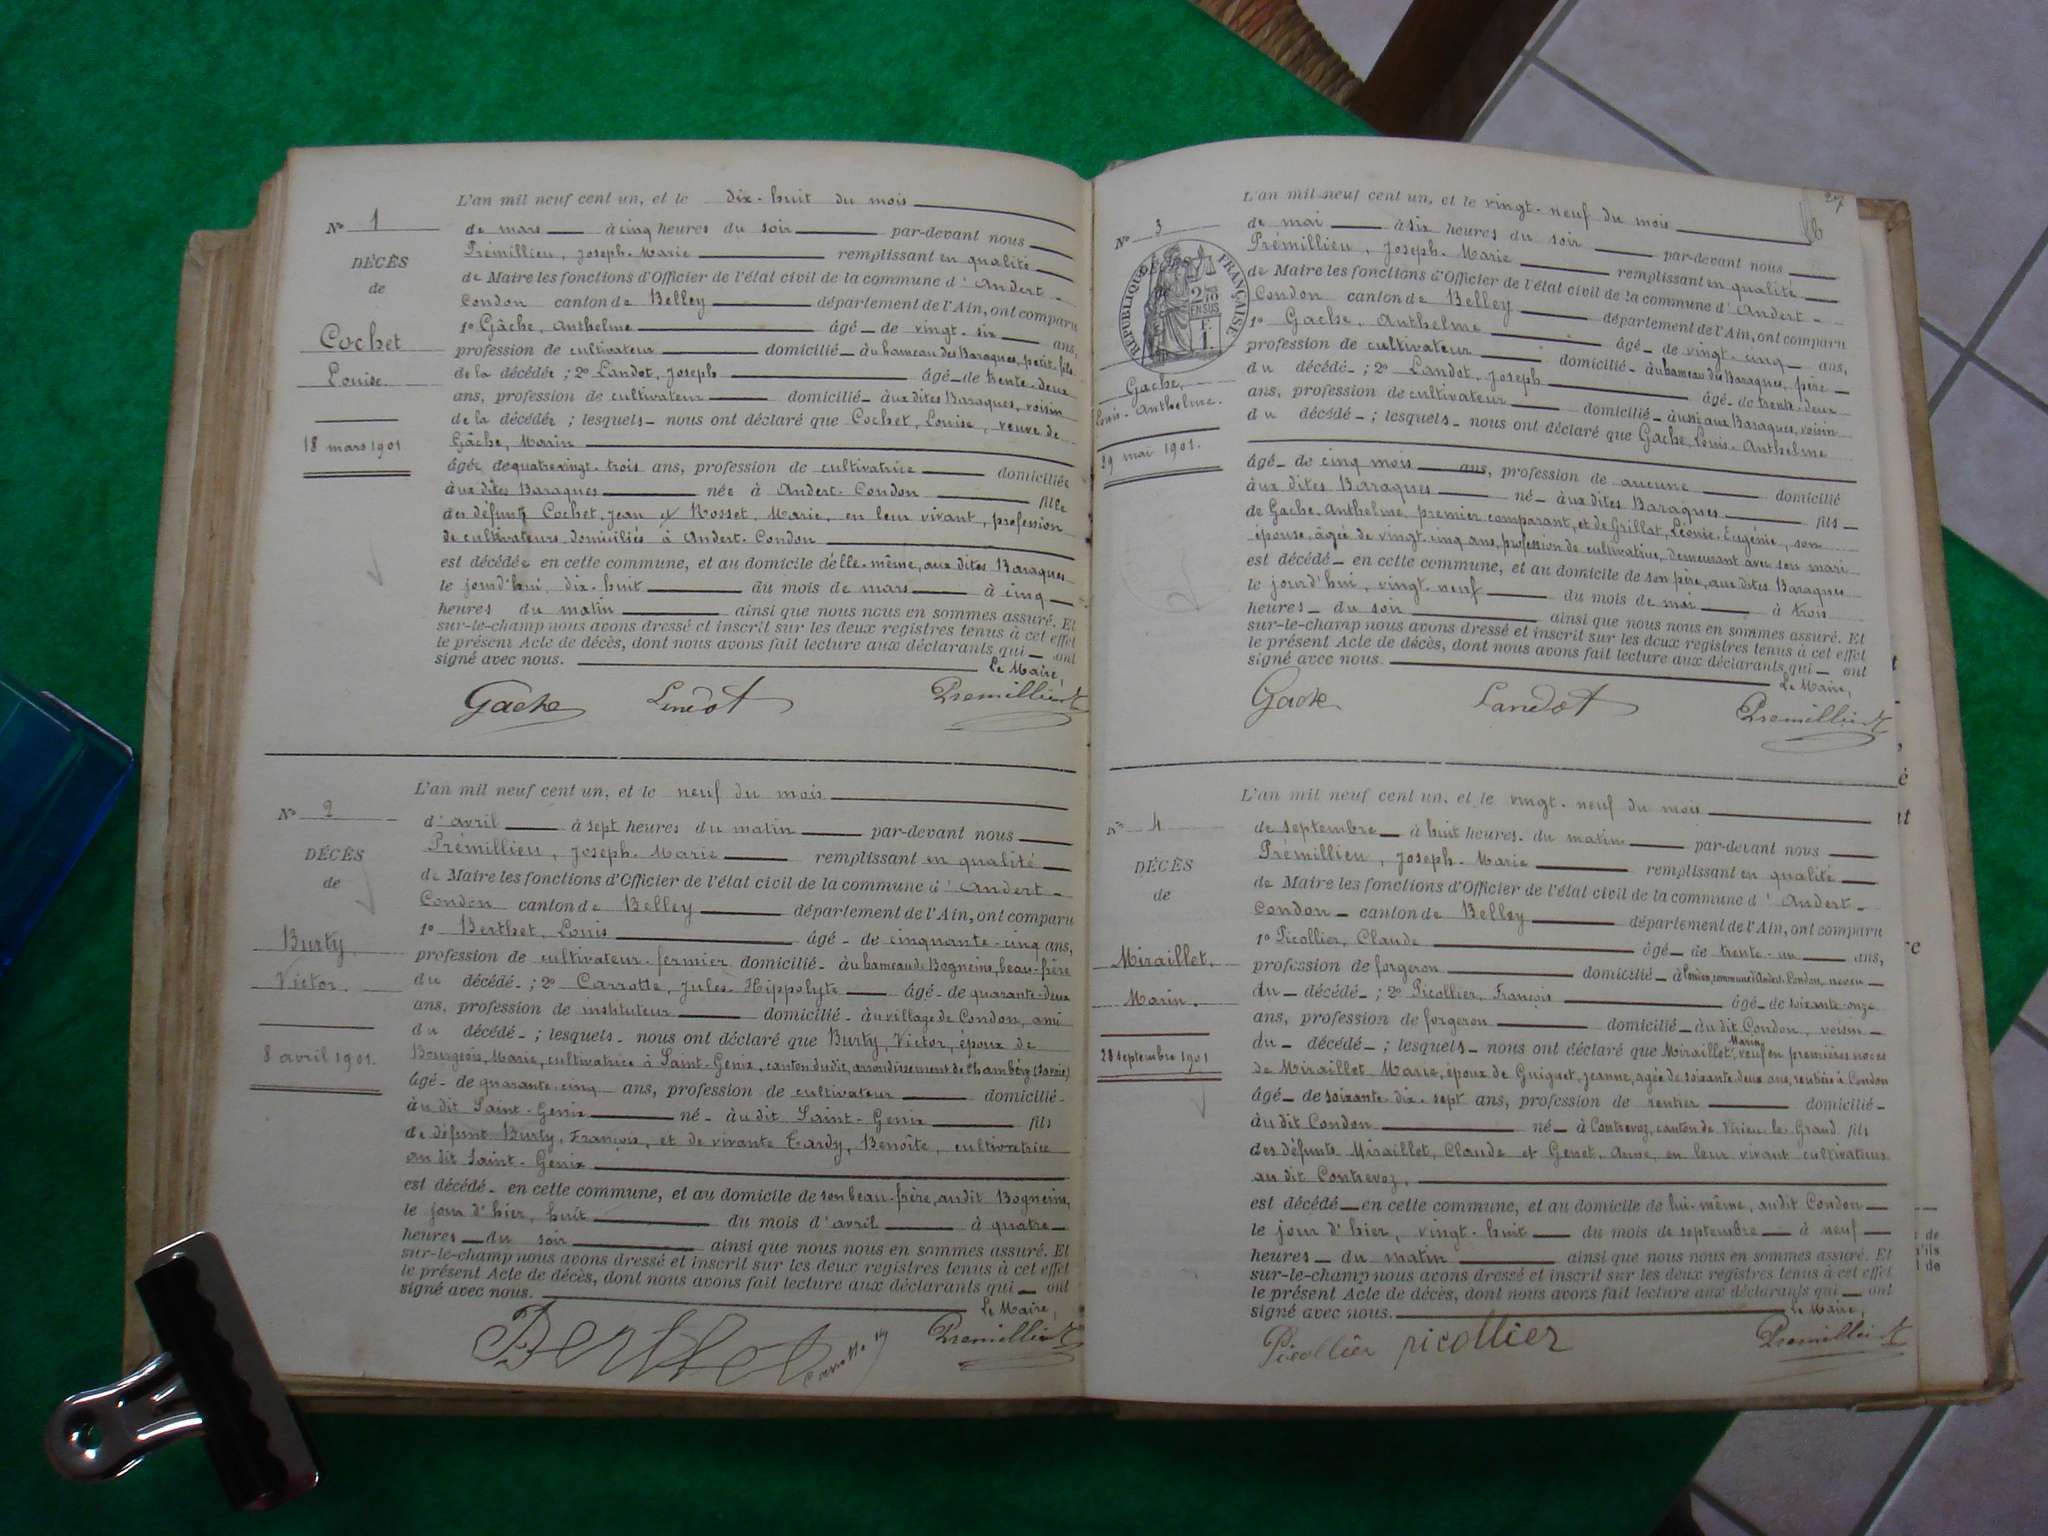 L'an mil neuf cent un, et le dix-huit du mois
Nº 1
de mars à cinq heures du soir par-devant nous
DÉCÈS
Prémillieu, Joseph-Marie remplissant en qualité
de
de Maire les fonctions d'Officier de l'état civil de la commune d'Andert-
Condon canton de Belley département de l'Ain, ont comparu
Cochet
1º Gâche, Anthelme âgé de vingt-six ans,
profession de cultivateur domicilié au hameau des Baraques, petit-fils
Louise
de la décédée ; 2º Landot, Joseph âgé de trente-deux
ans, profession de cultivateur domicilié aux dites Baraques, voisin
de la décédée ; lesquels nous ont déclaré que Cochet, Louise, veuve de
18 mars 1901
Gâche, Marin
âgée de quatre-vingt-trois ans, profession de cultivatrice domiciliée
aux dites Baraques née à Andert-Condon fille
des défunts Cochet, Jean et Rosset, Marie, en leur vivant, profession
de cultivateurs domiciliés à Andert-Condon
est décédée en cette commune, et au domicile d'elle-même, aux dites Baraques
le jourd'hui, dix-huit du mois de mars à cinq
heures du matin ainsi que nous nous en sommes assuré. Et
sur-le-champ nous avons dressé et inscrit sur les deux registres tenus à cet effet
le présent Acte de décès, dont nous avons fait lecture aux déclarants qui ont
signé avec nous. Le Maire,
Gache Landot Premillieu
L'an mil neuf cent un, et le neuf du mois
Nº 2
d'avril à sept heures du matin par-devant nous
DÉCÈS
Prémillieu, Joseph-Marie remplissant en qualité
de
de Maire les fonctions d'Officier de l'état civil de la commune d'Andert-
Condon canton de Belley département de l'Ain, ont comparu
Burty
1º Berthet, Louis âgé de cinquante-cinq ans,
profession de cultivateur-fermier domicilié au hameau de Bogneins, beau-frère
Victor.
du décédé ; 2º Carrotte, Jules-Hippolyte âgé de quarante-deux
ans, profession de instituteur domicilié au village de Condon, ami
du décédé ; lesquels nous ont déclaré que Burty, Victor, époux de
8 avril 1901.
Bourgeois, Marie, cultivatrice à Saint-Genix, canton dudit, arrondissement de Chambéry (Savoie)
âgé de quarante-cinq ans, profession de cultivateur domicilié
au dit Saint-Genix né au dit Saint-Genix fils
de défunt Burty, François, et de vivante Tardy, Benoîte, cultivatrice
au dit Saint-Genix
est décédé en cette commune, et au domicile de son beau-frère, au dit Bogneins,
le jour d'hier, huit du mois d'avril à quatre
heures du soir ainsi que nous nous en sommes assuré. Et
sur-le-champ nous avons dressé et inscrit sur les deux registres tenus à cet effet
le présent Acte de décès, dont nous avons fait lecture aux déclarants qui ont
signé avec nous. Le Maire,
Berthet Carrotte Premillieu
27
L'an mil neuf cent un, et le vingt-neuf du mois
Nº 3
de mai à six heures du soir par-devant nous
Prémillieu, Joseph-Marie remplissant en qualité
RÉPUBLIQUE FRANÇAISE
2/10 EN SUS
F. 1.
de Maire les fonctions d'Officier de l'état civil de la commune d'Andert-
Condon canton de Belley département de l'Ain, ont comparu
1º Gache, Anthelme âgé de vingt-cinq ans,
profession de cultivateur domicilié au hameau des Baraques, père
Gache,
du décédé ; 2º Landot, Joseph âgé de trente-deux
Louis-Anthelme.
ans, profession de cultivateur domicilié aussi aux Baraques, voisin
du décédé ; lesquels nous ont déclaré que Gache, Louis-Anthelme
29 mai 1901.
âgé de cinq mois ans, profession de aucune domicilié
aux dites Baraques né aux dites Baraques fils
de Gache, Anthelme, premier comparant, et de Grillat, Léonie-Eugénie, son
épouse, âgée de vingt-cinq ans, profession de cultivatrice, demeurant avec son mari
est décédé en cette commune, et au domicile de son père, aux dites Baraques
le jourd'hui, vingt-neuf du mois de mai à trois
heures du soir ainsi que nous nous en sommes assuré. Et
sur-le-champ nous avons dressé et inscrit sur les deux registres tenus à cet effet
le présent Acte de décès, dont nous avons fait lecture aux déclarants qui ont
signé avec nous. Le Maire,
Gache Landot Premillieu
L'an mil neuf cent un, et le vingt-neuf du mois
Nº 4
de septembre à huit heures du matin par-devant nous
DÉCÈS
Prémillieu, Joseph-Marie remplissant en qualité
de
de Maire les fonctions d'Officier de l'état civil de la commune d'Andert-
Condon canton de Belley département de l'Ain, ont comparu
1º Picollier, Claude âgé de trente-un ans,
Miraillet.
profession de forgeron domicilié à Condon, commune d'Andert-Condon, neveu
Marin.
du décédé ; 2º Picollier, François âgé de soixante-onze
ans, profession de forgeron domicilié au dit Condon, voisin
du décédé ; lesquels nous ont déclaré que Miraillet, Marin, veuf en premières noces
28 septembre 1901
de Miraillet, Marie, époux de Guiguet, Jeanne, âgée de soixante-deux ans, rentière à Condon
âgé de soixante-dix-sept ans, profession de rentier domicilié
au dit Condon né à Contrevoz, canton de Virieu-le-Grand fils
des défunts Miraillet, Claude et Genet, Anne, en leur vivant cultivateurs
au dit Contrevoz.
est décédé en cette commune, et au domicile de lui-même, au dit Condon
le jour d'hier, vingt-huit du mois de septembre à neuf
heures du matin ainsi que nous nous en sommes assuré. Et
sur-le-champ nous avons dressé et inscrit sur les deux registres tenus à cet effet
le présent Acte de décès, dont nous avons fait lecture aux déclarants qui ont
signé avec nous. Le Maire,
Picollier picollier Premillieu